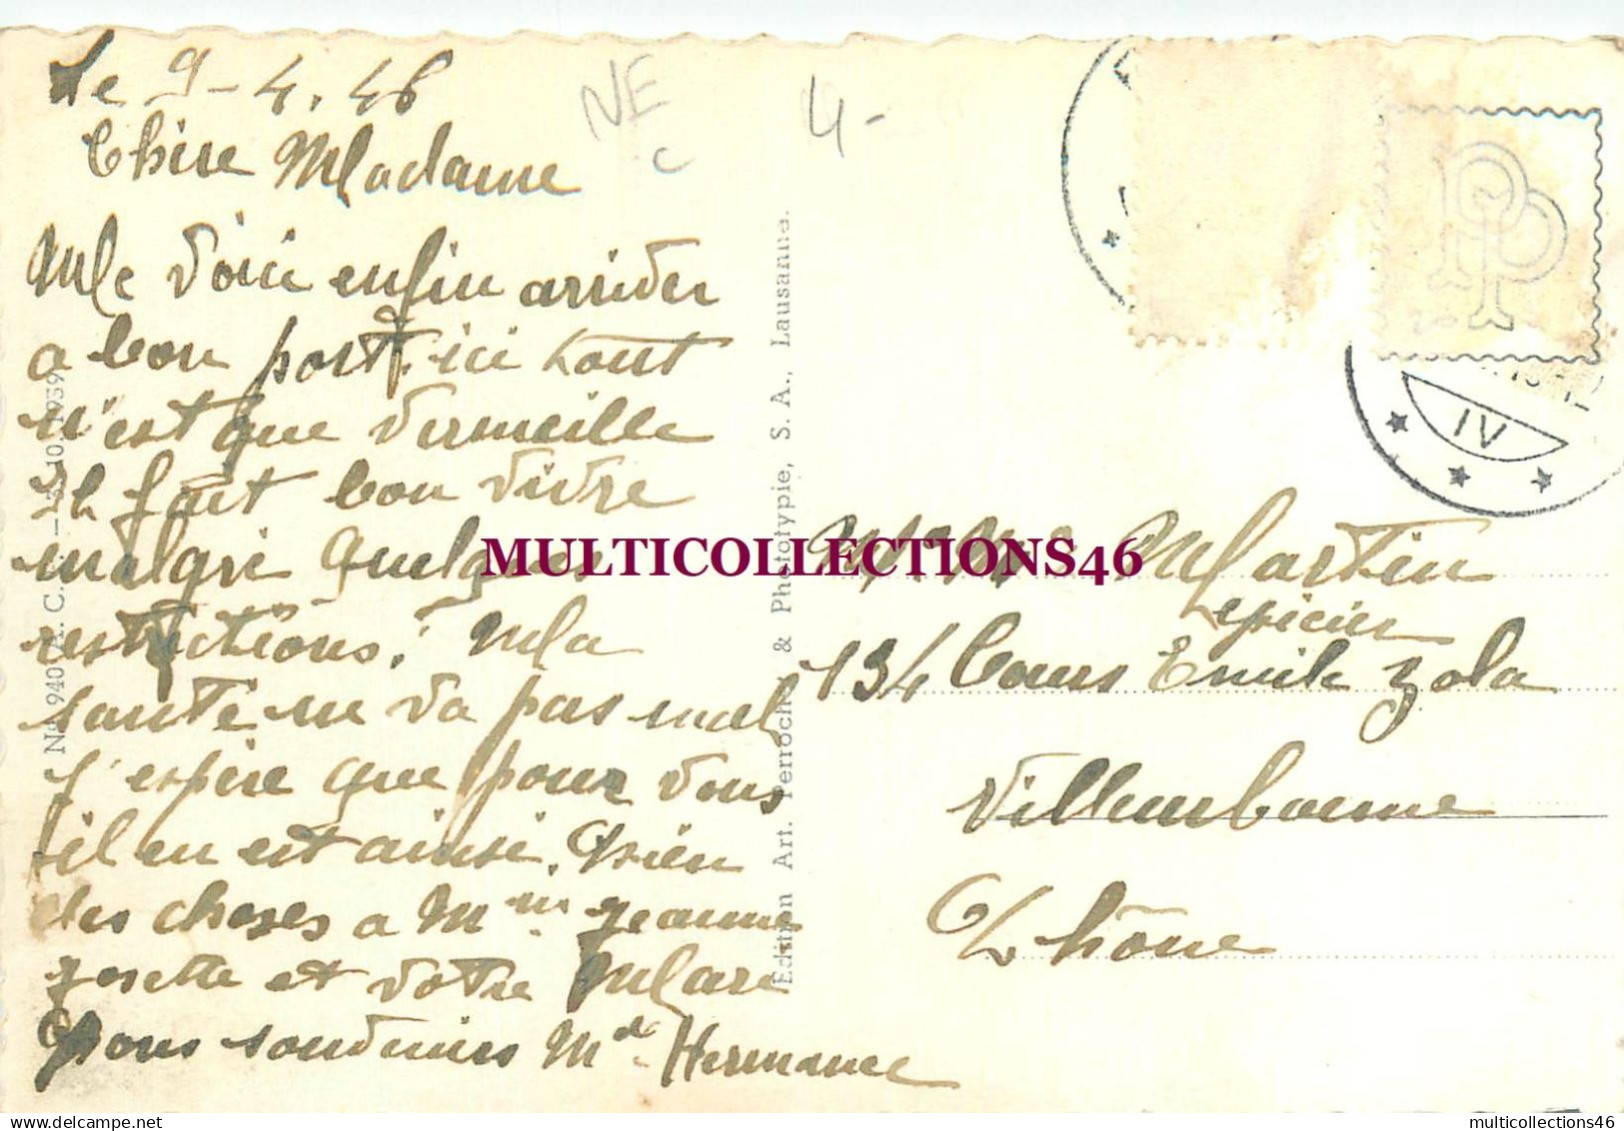 Le 9-4.46
NE
c
4-
Chère Madame
Me voici enfin arriver
a bon port. ici tout
n'est que vermeille
il fait bon vivre
malgré quelques
restrictions. Ma
santé ne va pas mal
j'espère que pour vous
il en est ainsi. Bien
des choses a Mme Jeanne
Josette et votre Mari
Bons souvenirs Mde Hermance
No 940 A. C. — 3. 10. 1939
Edition Art. Perrochet & Phototypie, S. A., Lausanne.
PP
IV
Martin
epicier
134 Cours Emile Zola
Villeurbanne
Rhône
MULTICOLLECTIONS46
multicollections46